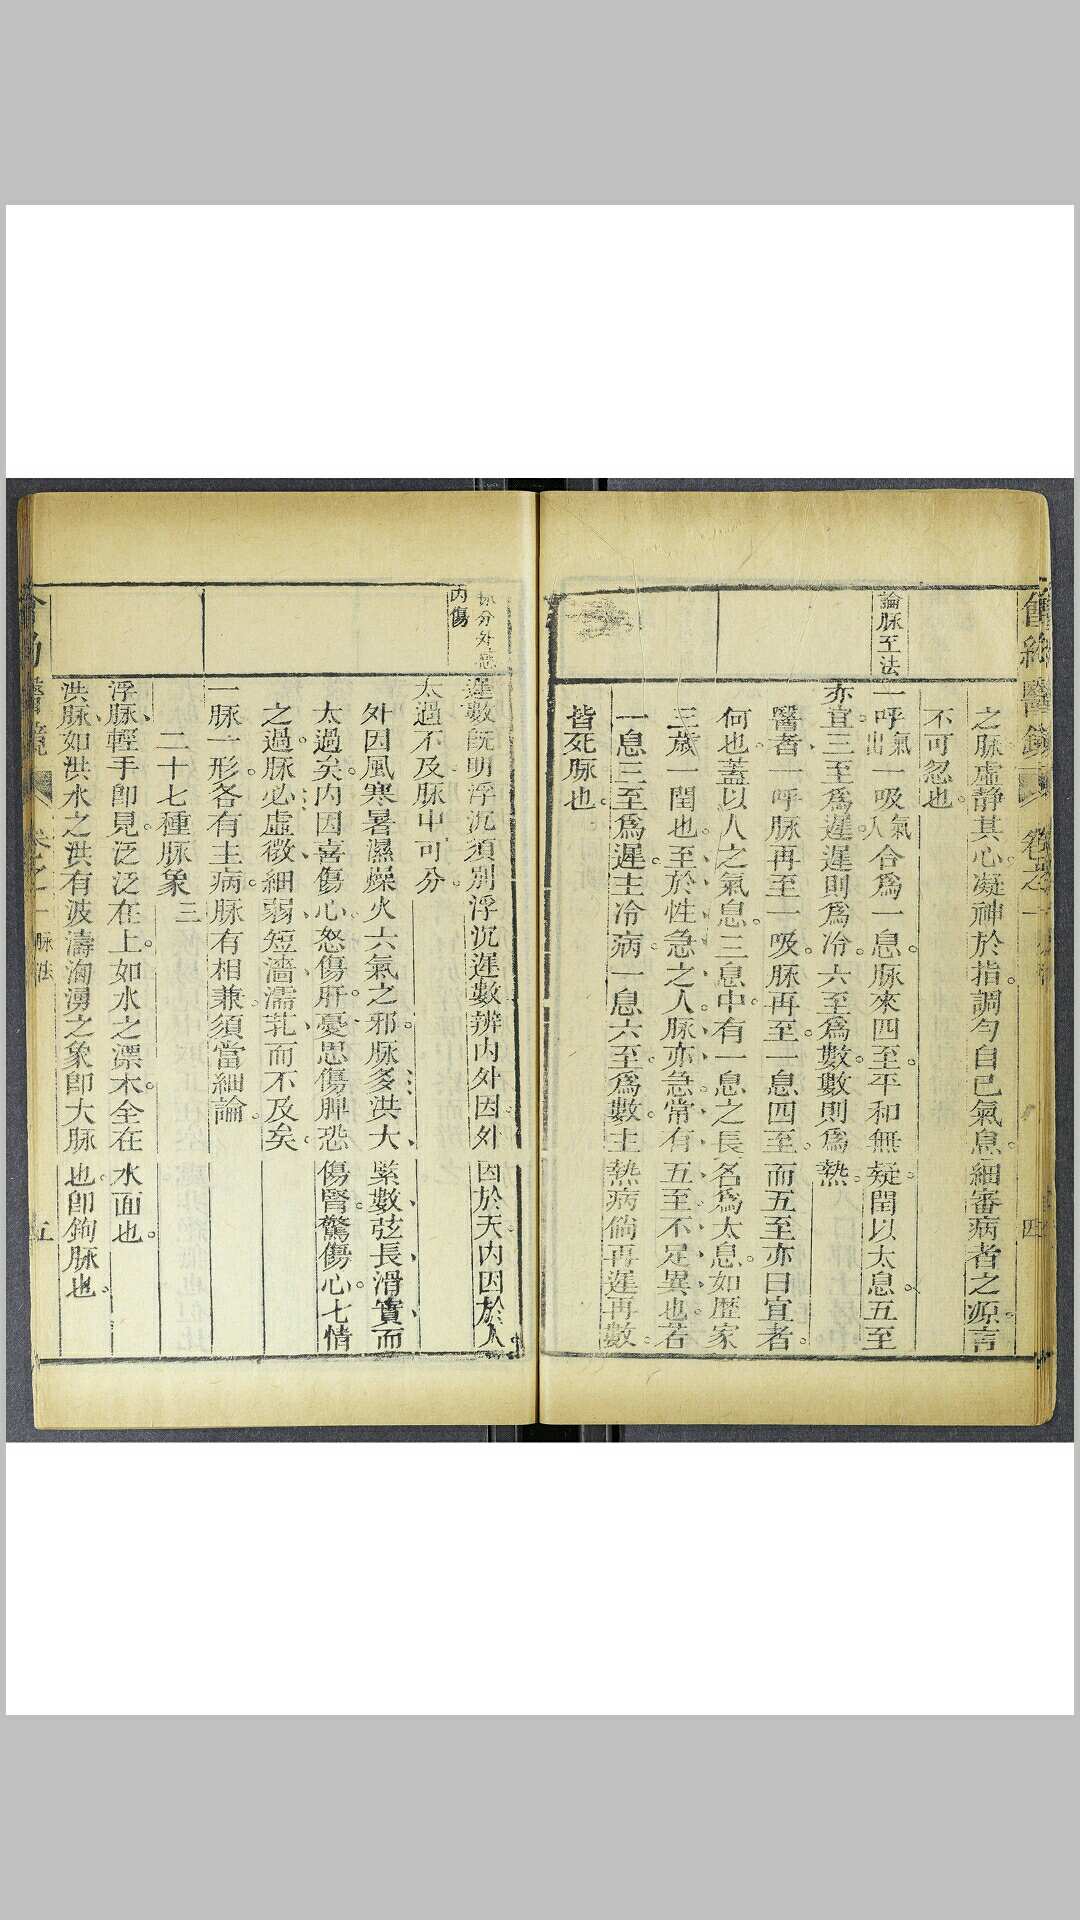 論脈至法
之脈虛靜其心凝神於指調勻自己氣息細審病者之源言
不可忽也
一呼氣出一吸氣入合爲一息脈來四至平和無疑閏以太息五至
亦宜三至爲遲遲則爲冷六至爲數數則爲熱
醫者一呼脈再至一吸脈再至一息四至而五至亦曰宜者
何也蓋以人之氣息三息中有一息之長名爲太息如歷家
三歲一閏也至於性急之人脈亦急常有五至不足異也若
一息三至爲遲主冷病一息六至爲數主熱病倘再遲再數
皆死脈也
四
脉分外感
內傷
遲數既明浮沉須別浮沉遲數辨內外因外因於天內因於人
太過不及脈中可分
外因風寒暑濕燥火六氣之邪脈多洪大緊數弦長滑實而
太過矣內因喜傷心怒傷肝憂思傷脾恐傷腎驚傷心七情
之過脈必虛微細弱短濇濡芤而不及矣
一脈一形各有主病脈有相兼須當細論
二十七種脈象三
浮脈輕手即見泛泛在上如水之漂木全在水面也
洪脈如洪水之洪有波濤洶湧之象即大脈也即鉤脈也
卷之一 脉法
五